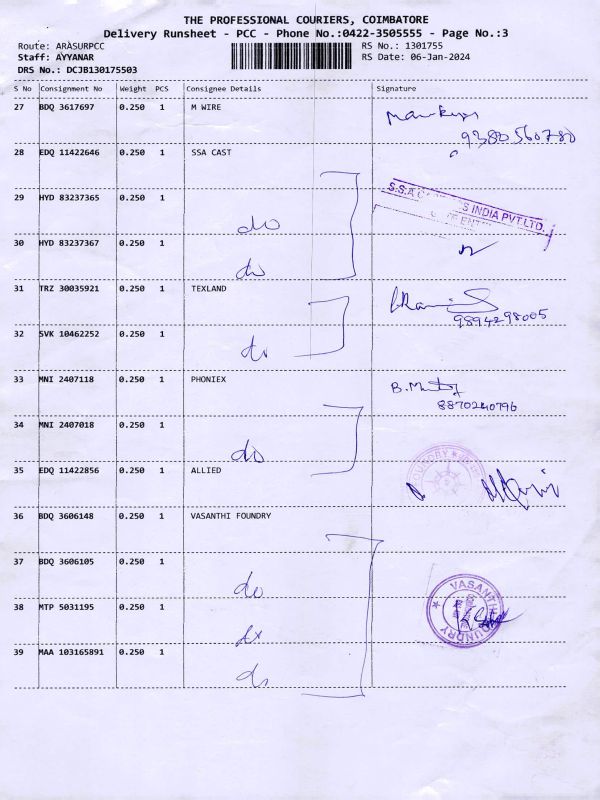 THE PROFESSIONAL COURIERS, COIMBATORE
Delivery Runsheet - PCC - Phone No.:0422-3505555 - Page No.:3
Route: ARASURPCC
Staff: AYYANAR
DRS No.: DCJB130175503
RS No.: 1301755
RS Date: 06-Jan-2024
S No Consignment No Weight PCS Consignee Details Signature
27 BDQ 3617697 0.250 1 M WIRE
9380560780
28 EDQ 11422646 0.250 1 SSA CAST
29 HYD 83237365 0.250 1
do
S.S.A INDIA PVT.LTD.
30 HYD 83237367 0.250 1
do
31 TRZ 30035921 0.250 1 TEXLAND
9894298005
32 SVK 10462252 0.250 1
do
33 MNI 2407118 0.250 1 PHONIEX
8870240796
34 MNI 2407018 0.250 1
do
35 EDQ 11422856 0.250 1 ALLIED
36 BDQ 3606148 0.250 1 VASANTHI FOUNDRY
37 BDQ 3606105 0.250 1
do
38 MTP 5031195 0.250 1
VASANTHI FOUNDRY
39 MAA 103165891 0.250 1
do